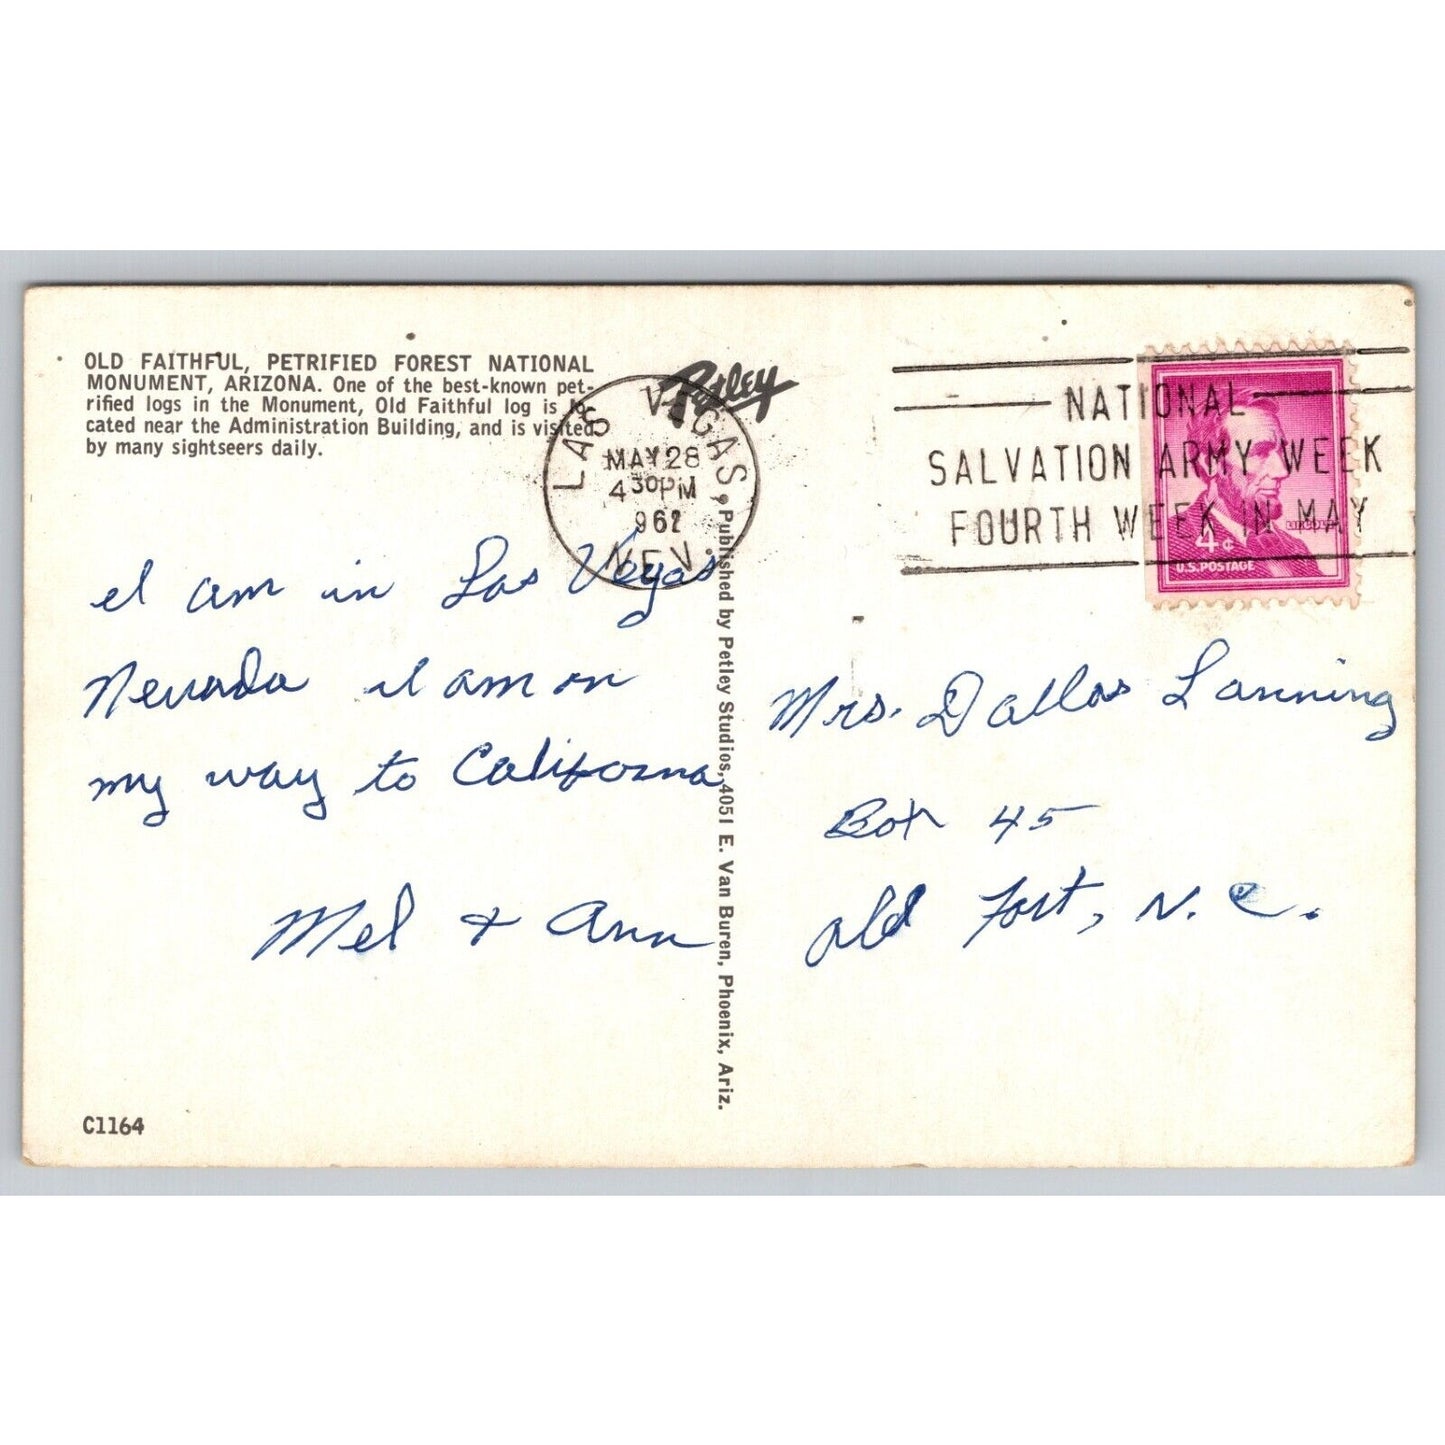 OLD FAITHFUL, PETRIFIED FOREST NATIONAL
MONUMENT, ARIZONA. One of the best-known pet-
rified logs in the Monument, Old Faithful log is lo-
cated near the Administration Building, and is visited
by many sightseers daily.
Petley
LAS VEGAS,
MAY 28
4 30 PM
NEV.
NATIONAL
SALVATION ARMY WEEK
FOURTH WEEK IN MAY
LINCOLN
4¢
U.S. POSTAGE
I am in Las Vegas
Nevada I am on
my way to California
Mel & Ann
Published by Petley Studios, 4051 E. Van Buren, Phoenix, Ariz.
Mrs. Dallas Lanning
Box 45
Old Fort, N.C.
C1164